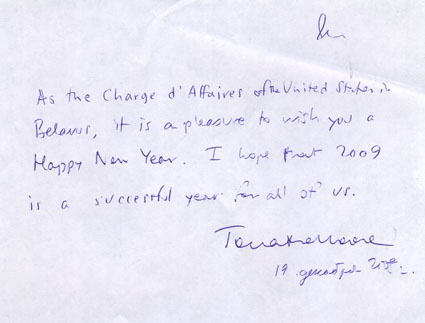 As the Charge d'Affaires of the United States in
Belarus, it is a pleasure to wish you a
Happy New Year. I hope that 2009
is a successful year for all of us.
19 декабря